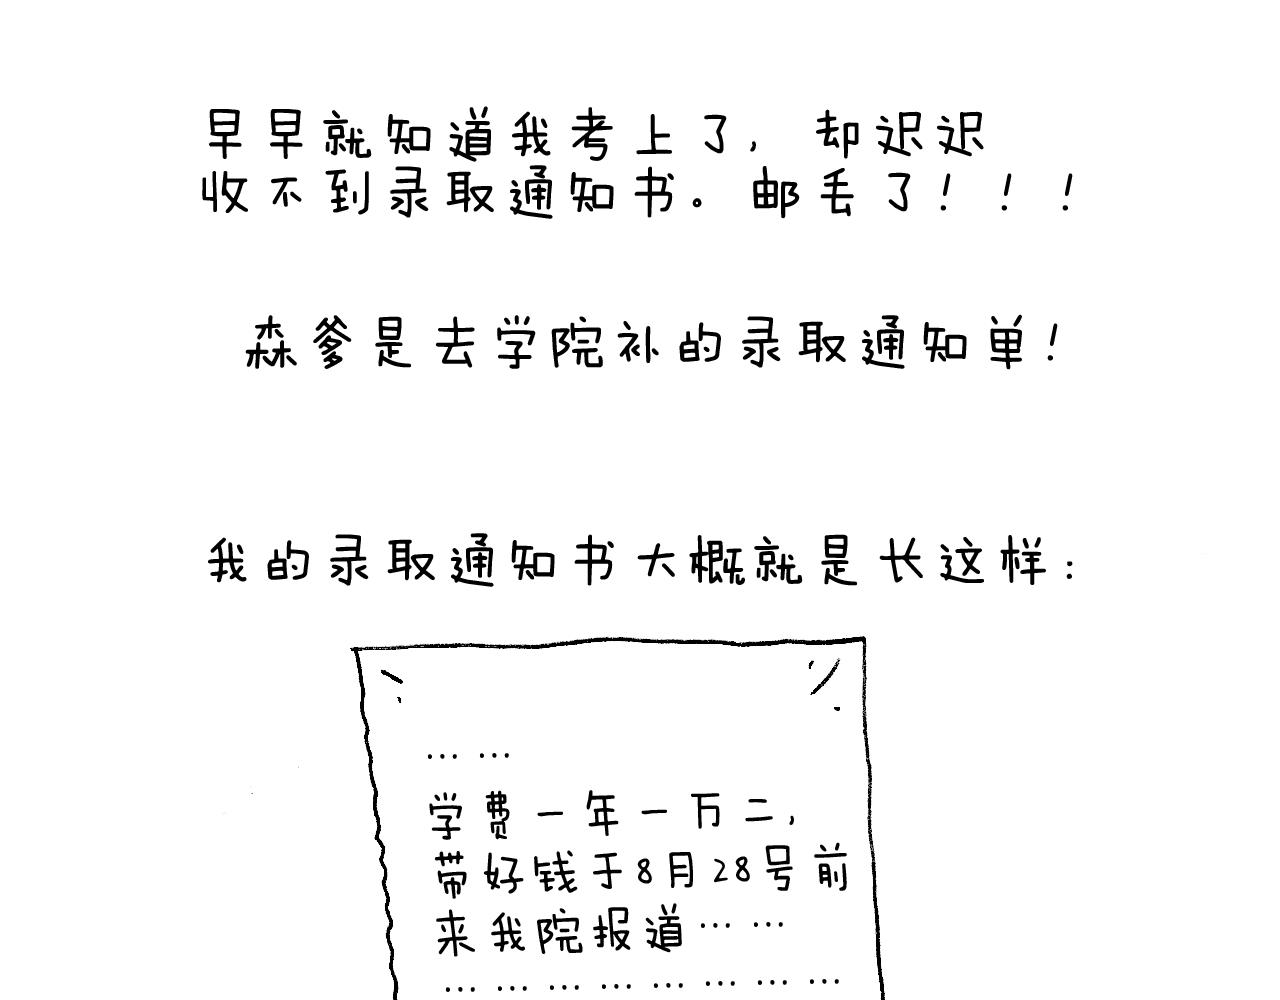 早早就知道我考上了，却迟迟
收不到录取通知书。邮丢了！！！
森爹是去学院补的录取通知单！
我的录取通知书大概就是长这样：
…… 
学费一年一万二，
带好钱于8月28号前
来我院报道……
………………………